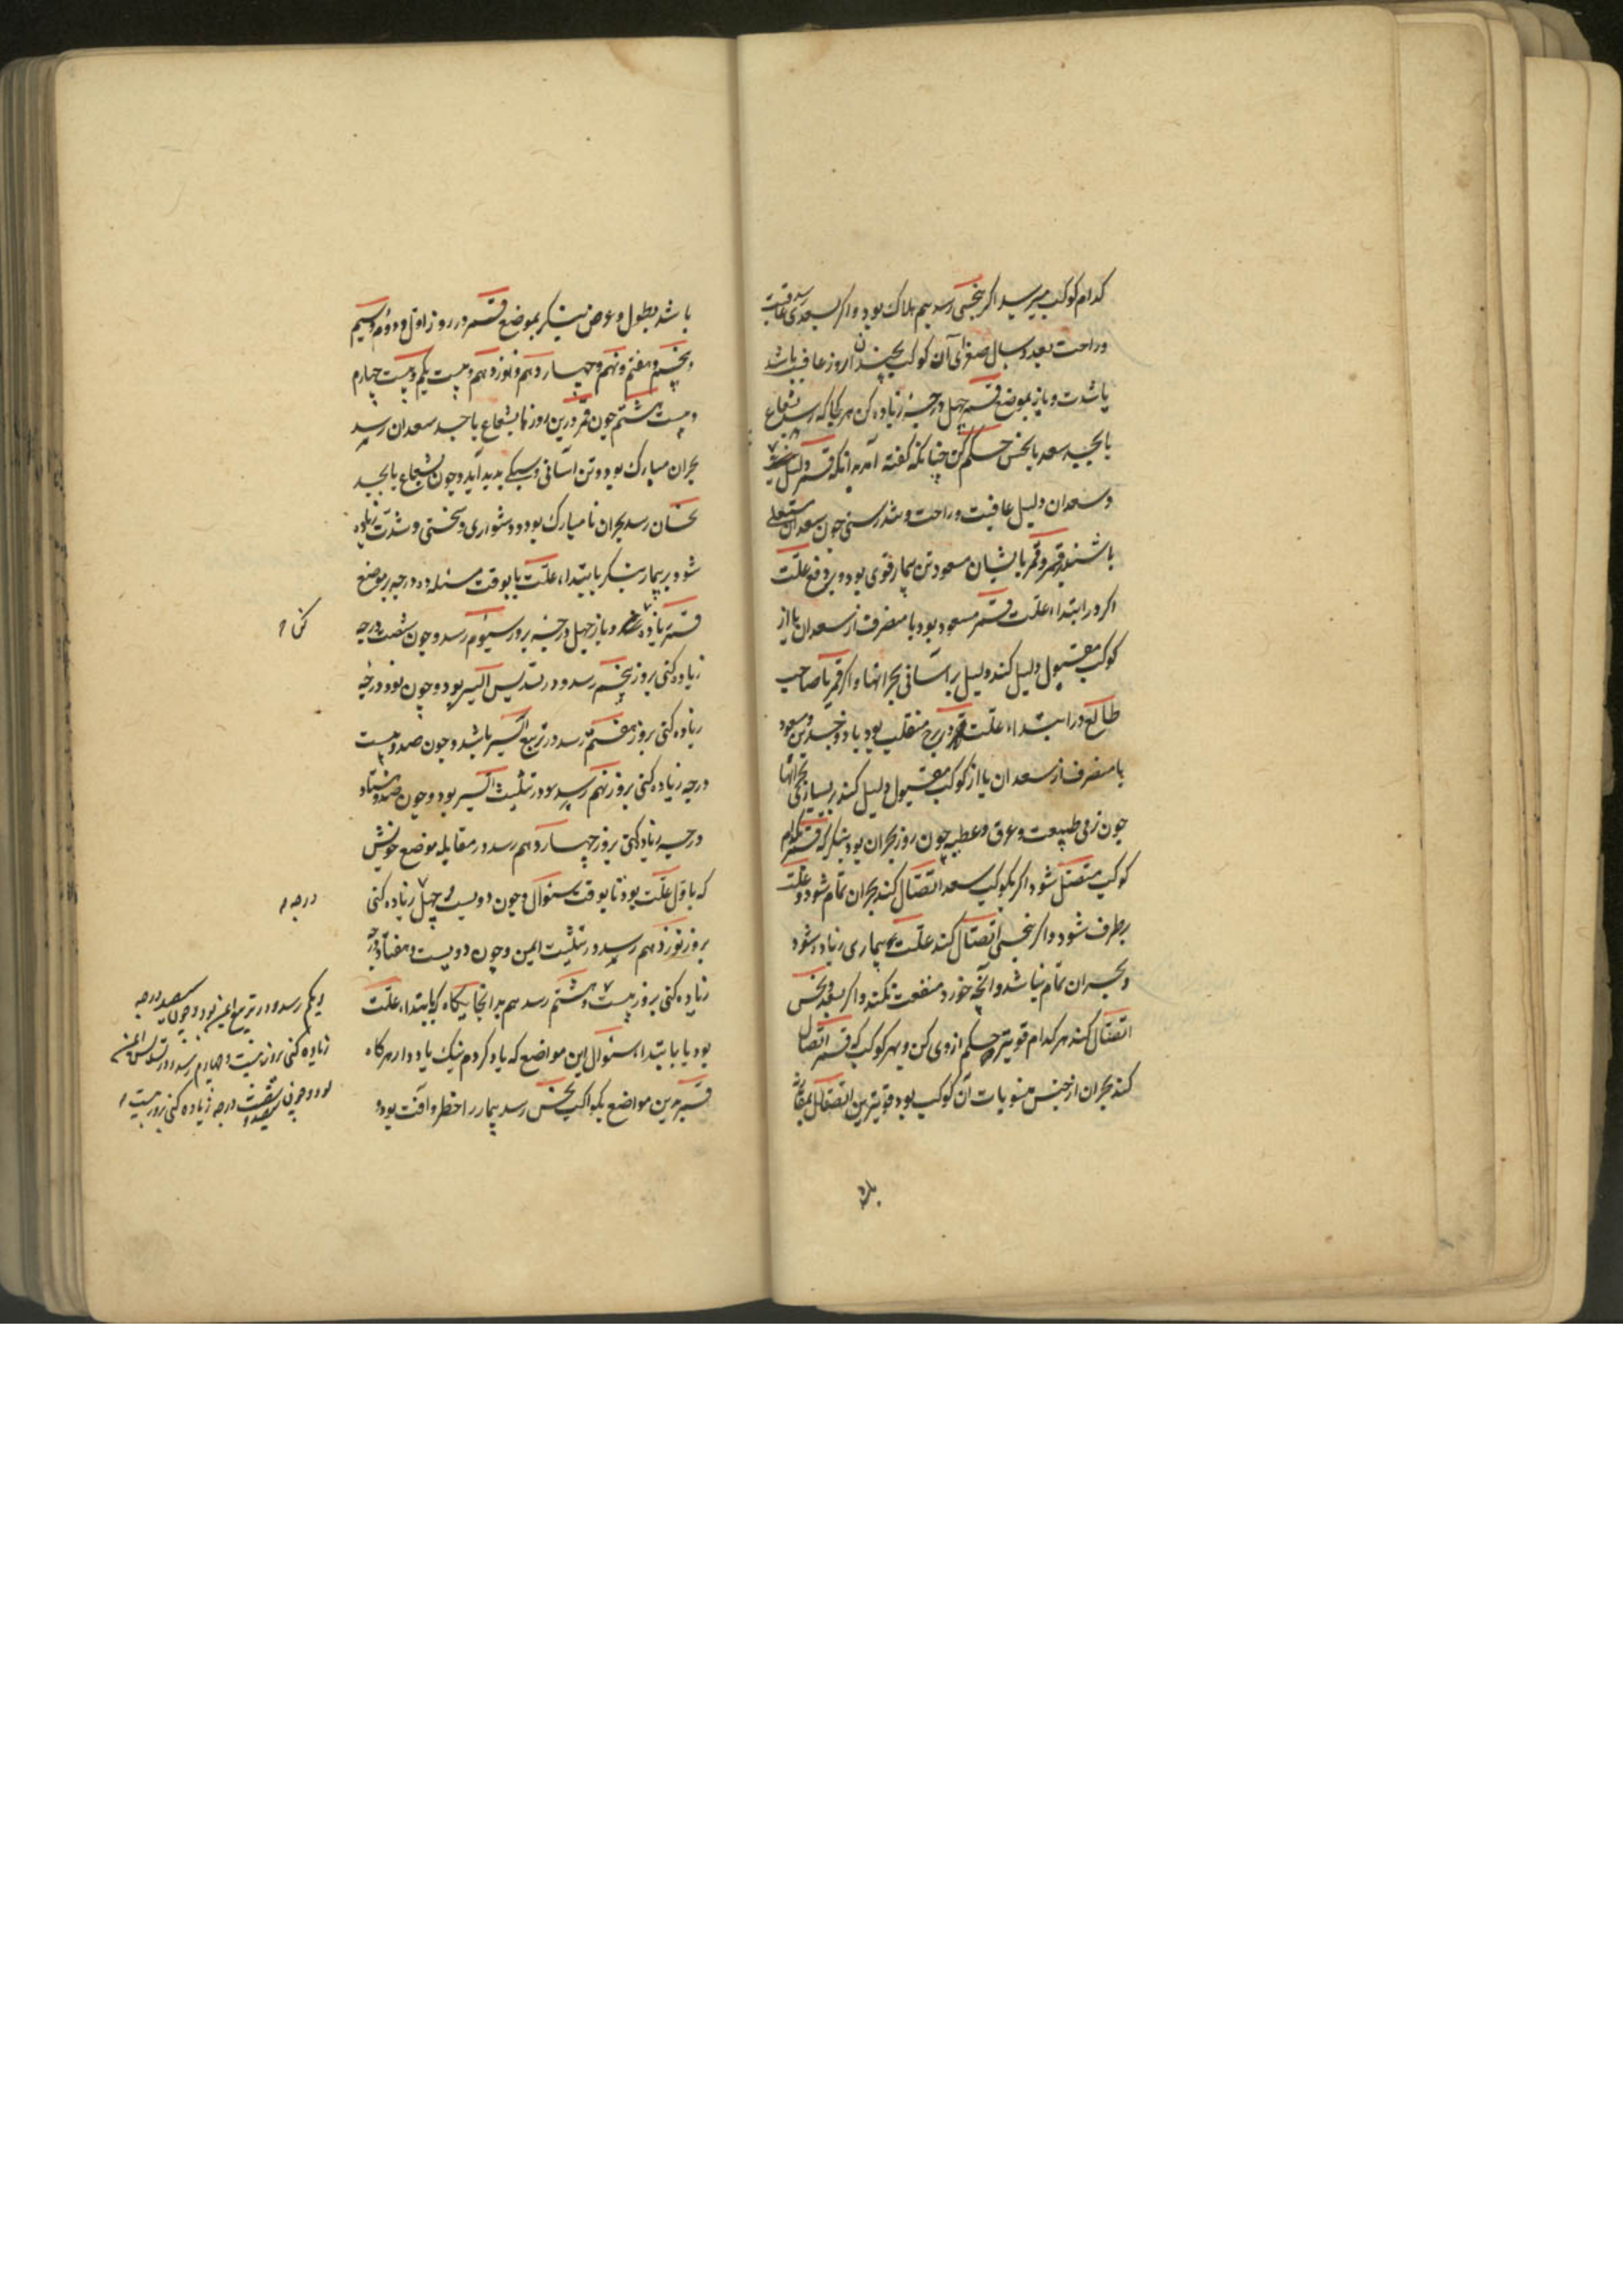 کدام کوکب میرسد اکر بنحسی رسد بیم هلاک بود و اکر بسعدی رسد عاقبت
وراحت بعدد سال صغرای آن کوکب بچندان روز عافیت باشد
یا شدت و باز بموضع قمر چهل درجه زیاده کن هر کجا که رسد بشعاع
یا بجسد سعد یا نحس حکم کن چنانکه کفته آمد بدانکه قمر دلیل
وسعدان دلیل عافیت وراحت وتندرستی چون سعدان مستعلی
باشند بر قمر و قمر بایشان مسعود تن بیمار قوی بود بر دفع علت
اکر در ابتداء علت قمر مسعود بود یا منصرف از سعدان یا از
کوکب مقبول دلیل کند دلیل بر آسانی بحرانها و اکر قمر یا صاحب
طالع در ابتداء علت در برج منقلب بود یا ذوجسدین و مسعود
یا منصرف از سعدان یا از کوکب مقبول دلیل کند بر بسیاری بحرانها
چون رفق طبیعت وعرق وعطسه چون روز بحران بود بنکر که قمر بکدام
کوکب متصل شود اکر بکوکب سعد اتصال کند بحران تمام شود و علت
برطرف شود و اکر بنحسی اتصال کند علت و بیماری زیاده شود
وبحران تمام نباشد و آنچه خورد منفعت نکند و اکر بسعد و نحس
اتصال کند هر کدام قویتر حکم از وی کن و بهر کوکب که قمر اتصال
کند بحران از جنس منسوبات آن کوکب بود و قویترین اتصال
باشد بطول و عرض بنکر بموضع قمر در روز اول و دوم و سیم
وپنجم وهفتم ونهم وچهاردهم ونوزدهم وبیست یکم وبیست چهارم
وبیست هشتم چون قمر درین روزها بشعاع یا جسد سعدان رسد
بحران مبارک بود و تن آسانی وسبکی پدید آید و چون بشعاع یا بجسد
نحسان رسد بحران نامبارک بود و دشواری وسختی وشدت زیاده
شود بر بیمار بنکر بابتداء علت یا بوقت مسئله ده درجه بر موضع
قمر زیاده و باز چهل درجه بروز سیوم رسد و چون شصت درجه
زیاده کنی بروز پنجم رسد و در تسدیس ایسر بود و چون نود درجه
زیاده کنی بروز هفتم رسد در تربیع ایسر باشد و چون صد و بیست
درجه زیاده کنی بروز نهم رسد و در تثلیث ایسر بود و چون صد و هشتاد
درجه زیاده کنی بروز چهاردهم رسد در مقابله موضع خویش
که باول علت بود تا بوقت سئوال و چون دویست و چهل زیاده کنی
بروز نوزدهم رسد در تثلیث ایمن و چون دویست و هفتاد درجه
زیاده کنی بروز بیست و هشتم رسد هم بدانجایکاه که بابتداء علت
بود یا بابتداء سئوال این مواضع که یاد کردم نیک یاد دار هرکاه
قمر درین مواضع بکواکب نحس رسد بیمار را خطر و آفت بود
کن
درجه
ویکم رسد و در تربیع ایمن بود و چون سیصد درجه
زیاده کنی بروز بیست و چهارم رسد و در تسدیس ایمن
بود و چون سیصد و شصت درجه زیاده کنی بروز بیست